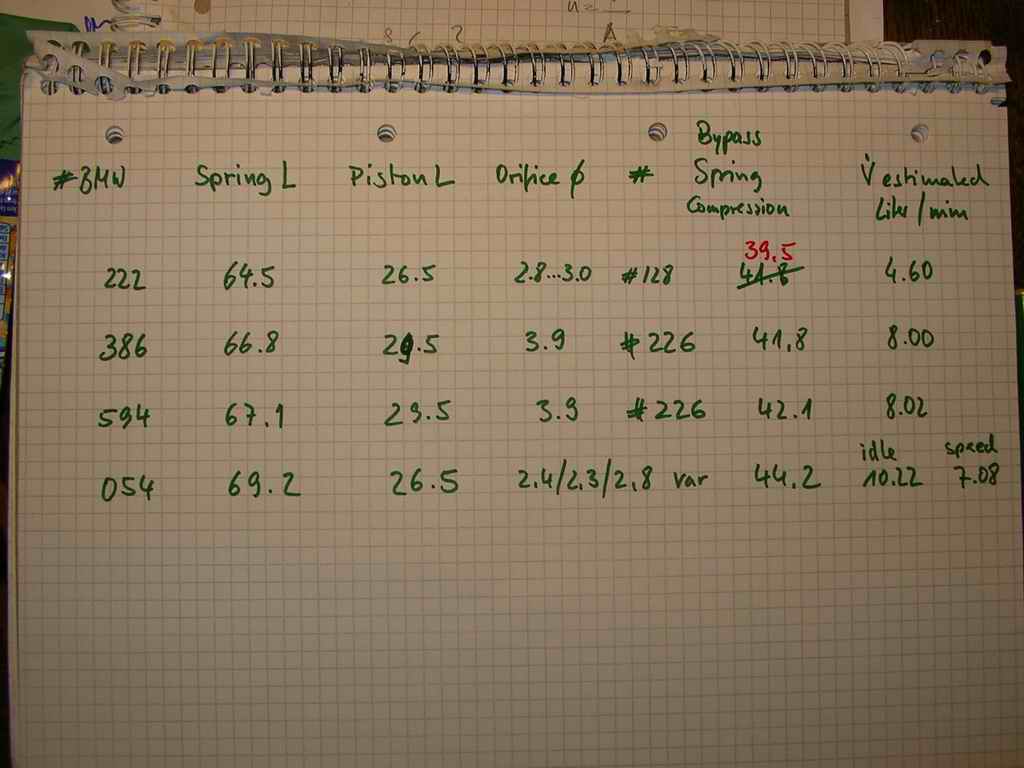 Bypass
#BMW Spring L Piston L Orifice ϕ # Spring V̇ estimated
Compression Liter/min
39,5
222 64.5 26.5 2.8...3.0 #128 41.8 4.60
386 66.8 29.5 3.9 #226 41,8 8.00
594 67.1 29.5 3.9 #226 42.1 8.02
idle speed
054 69.2 26.5 2,4/2,3/2,8 var 44.2 10.22 7.08